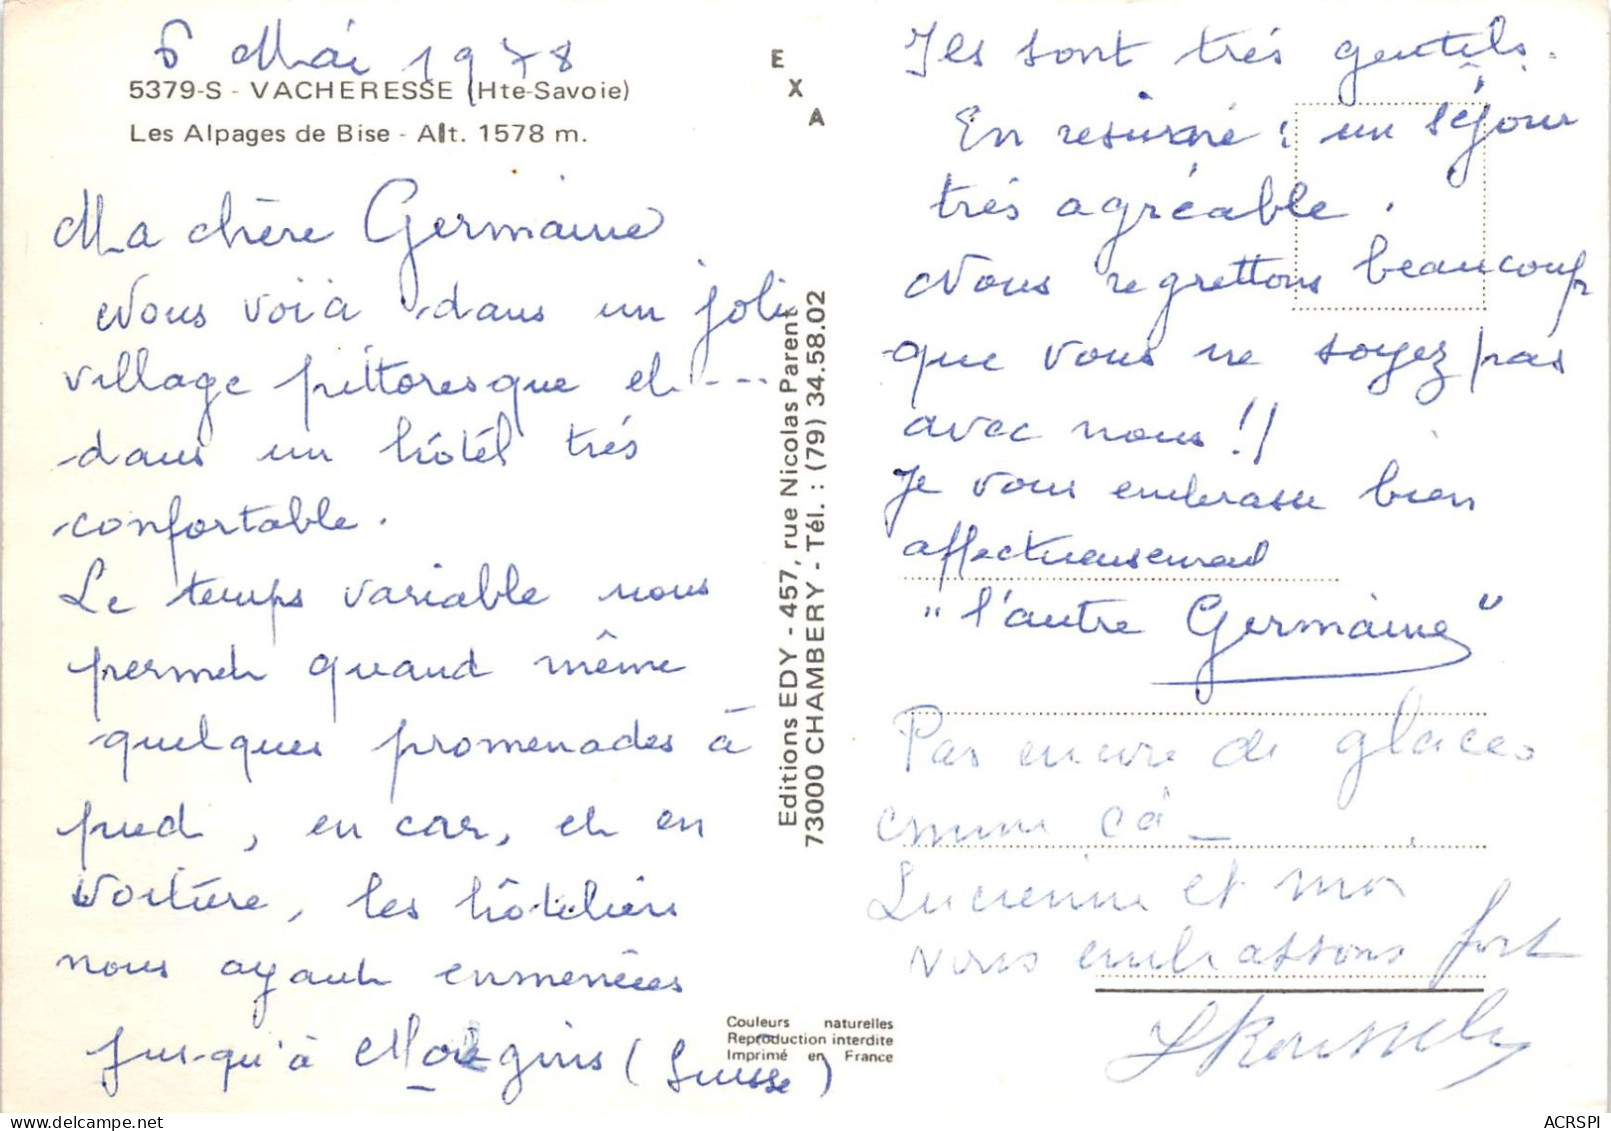 6 Mai 1978
5379-S - VACHERESSE (Hte-Savoie)
Les Alpages de Bise - Alt. 1578 m.
Ma chère Germaine
Nous voià dans un joli
village pittoresque et ---
dans un hôtel trés
confortable.
Le temps variable nous
permet quand même
quelques promenades à
pied, en car, et en
voiture, les hôteliers
nous ayant emmenées
jusqu'à Morgins (Suisse)
E
X
A
Editions EDY - 457, rue Nicolas Parent
73000 CHAMBERY - Tél. : (79) 34.58.02
Couleurs naturelles
Reproduction interdite
Imprimé en France
Ils sont trés gentils.
En résumé : un séjour
trés agréable.
Nous regrettons beaucoup
que vous ne soyez pas
avec nous !!
Je vous embrasse bien
affectueusement
"l'autre Germaine"
Pas encore de glaces
comme ça -
Lucienne et moi
vous embrassons fort
ACRSPI